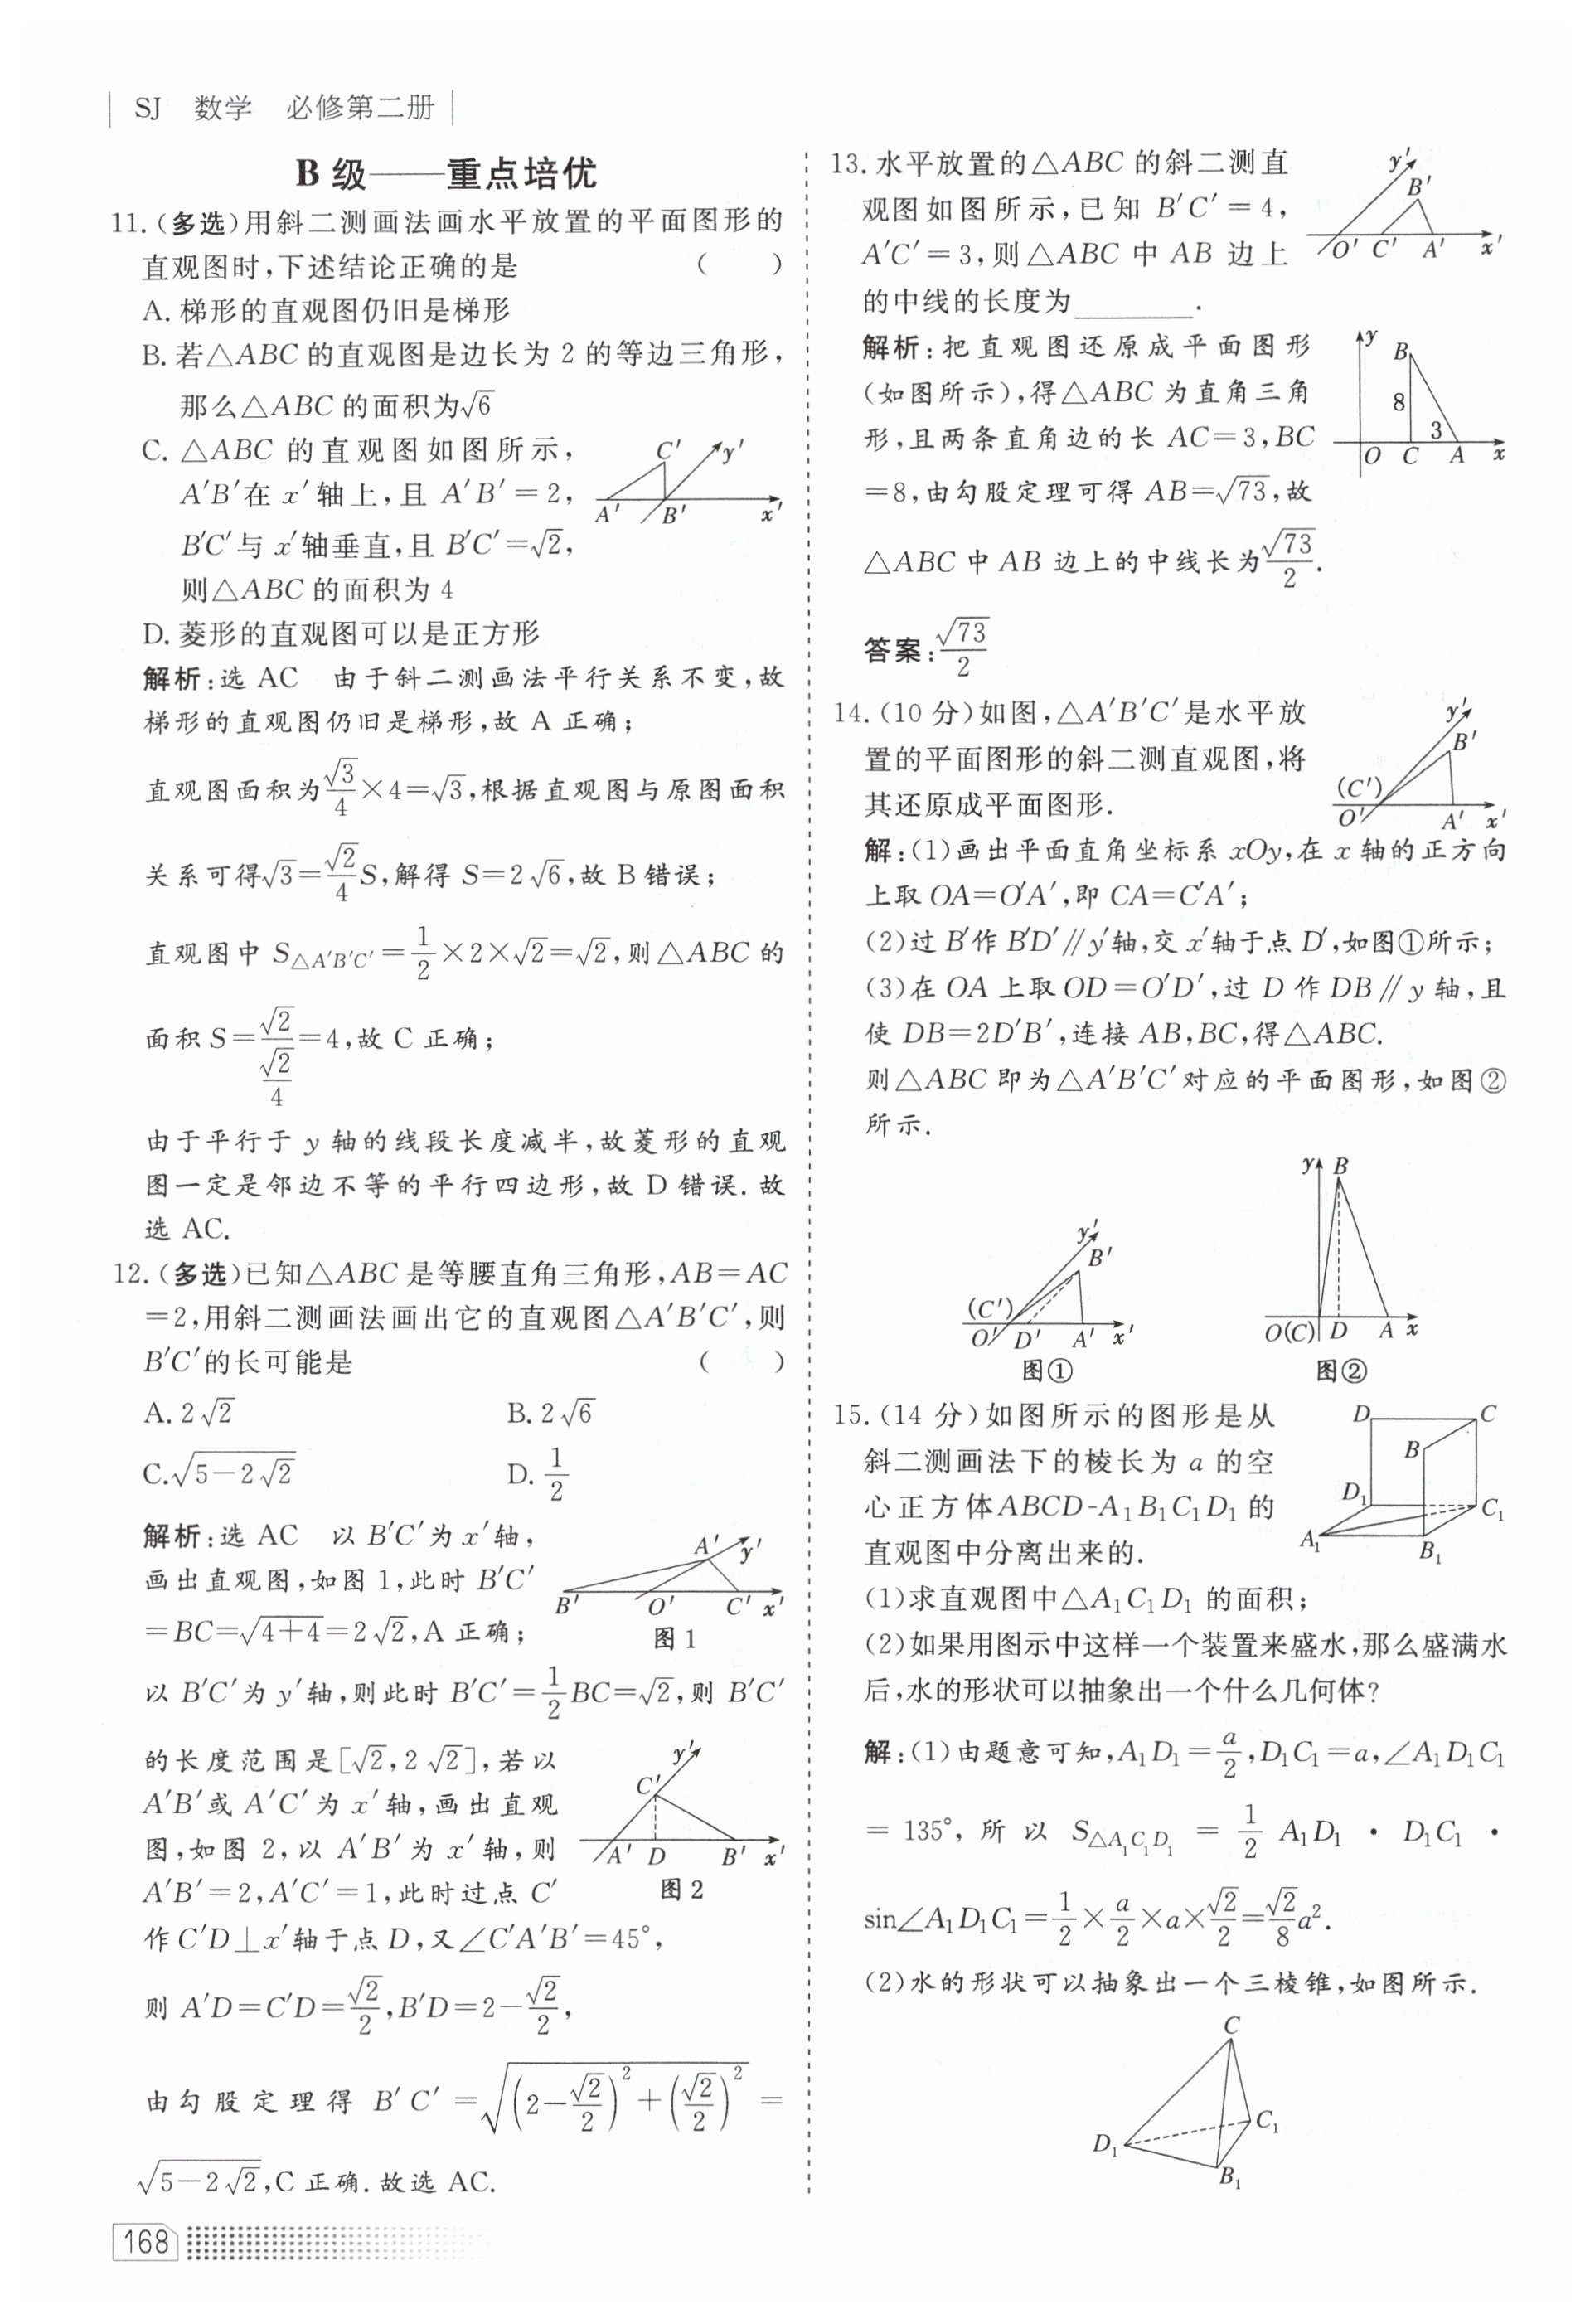 SJ 数学 必修第二册
B 级——重点培优
11.(多选)用斜二测画法画水平放置的平面图形的
直观图时,下述结论正确的是 ( )
A. 梯形的直观图仍旧是梯形
B. 若△ABC 的直观图是边长为 2 的等边三角形,
那么△ABC 的面积为√6
C. △ABC 的直观图如图所示,
A′B′在 x′轴上,且 A′B′=2,
B′C′与 x′轴垂直,且 B′C′=√2,
则△ABC 的面积为 4
C′ y′
A′ B′ x′
D. 菱形的直观图可以是正方形
解析:选 AC 由于斜二测画法平行关系不变,故
梯形的直观图仍旧是梯形,故 A 正确;
直观图面积为√3/4×4=√3,根据直观图与原图面积
关系可得√3=√2/4 S,解得 S=2√6,故 B 错误;
直观图中 S△A′B′C′=1/2×2×√2=√2,则△ABC 的
面积 S=√2/(√2/4)=4,故 C 正确;
由于平行于 y 轴的线段长度减半,故菱形的直观
图一定是邻边不等的平行四边形,故 D 错误. 故
选 AC.
12.(多选)已知△ABC 是等腰直角三角形,AB=AC
=2,用斜二测画法画出它的直观图△A′B′C′,则
B′C′的长可能是 ( )
A. 2√2 B. 2√6
C.√(5-2√2) D. 1/2
解析:选 AC 以 B′C′为 x′轴,
画出直观图,如图 1,此时 B′C′
=BC=√(4+4)=2√2,A 正确;
A′ y′
B′ O′ C′ x′
图 1
以 B′C′为 y′轴,则此时 B′C′=1/2 BC=√2,则 B′C′
的长度范围是[√2,2√2],若以
A′B′或 A′C′为 x′轴,画出直观
图,如图 2,以 A′B′为 x′轴,则
A′B′=2,A′C′=1,此时过点 C′
y′
C′
A′ D B′ x′
图 2
作 C′D⊥x′轴于点 D,又∠C′A′B′=45°,
则 A′D=C′D=√2/2,B′D=2-√2/2,
由勾股定理得 B′C′=√((2-√2/2)²+(√2/2)²)=
√(5-2√2),C 正确. 故选 AC.
168
13. 水平放置的△ABC 的斜二测直
观图如图所示,已知 B′C′=4,
A′C′=3,则△ABC 中 AB 边上
的中线的长度为________.
y′
B′
O′ C′ A′ x′
解析:把直观图还原成平面图形
(如图所示),得△ABC 为直角三角
形,且两条直角边的长 AC=3,BC
=8,由勾股定理可得 AB=√73,故
y
B
8
3
O C A x
△ABC 中 AB 边上的中线长为√73/2.
答案:√73/2
14.(10 分)如图,△A′B′C′是水平放
置的平面图形的斜二测直观图,将
其还原成平面图形.
y′
B′
(C′)
O′ A′ x′
解:(1)画出平面直角坐标系 xOy,在 x 轴的正方向
上取 OA=O′A′,即 CA=C′A′;
(2)过 B′作 B′D′∥y′轴,交 x′轴于点 D′,如图①所示;
(3)在 OA 上取 OD=O′D′,过 D 作 DB∥y 轴,且
使 DB=2D′B′,连接 AB,BC,得△ABC.
则△ABC 即为△A′B′C′对应的平面图形,如图②
所示.
y′
B′
(C′)
O′ D′ A′ x′
图①
y B
O(C) D A x
图②
15.(14 分)如图所示的图形是从
斜二测画法下的棱长为 a 的空
心正方体ABCD-A₁B₁C₁D₁ 的
直观图中分离出来的.
D C
B
D₁ C₁
A₁ B₁
(1)求直观图中△A₁C₁D₁ 的面积;
(2)如果用图示中这样一个装置来盛水,那么盛满水
后,水的形状可以抽象出一个什么几何体?
解:(1)由题意可知,A₁D₁=a/2,D₁C₁=a,∠A₁D₁C₁
=135°,所以 S△A₁C₁D₁=1/2 A₁D₁·D₁C₁·
sin∠A₁D₁C₁=1/2×a/2×a×√2/2=√2/8 a².
(2)水的形状可以抽象出一个三棱锥,如图所示.
C
D₁ C₁
B₁